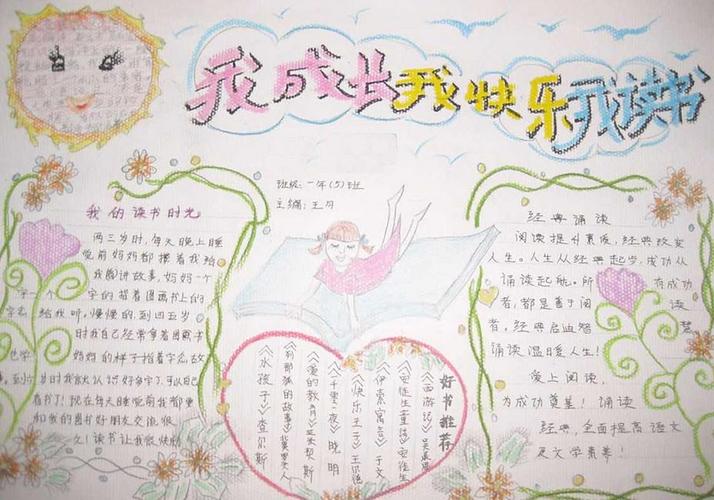 我成长我快乐我读书
班级:一年(5)班
主编:王月
我的读书时光
两三岁时,每天晚上睡
觉前妈妈都搂着我给
我脚讲故事,妈妈一个
字一个字的指着图画书上的
给我听,慢慢的,到四五岁
时我自己经常拿着图画书
妈妈的样子指着字念故
岁时我就认识好多字了,可以自己
看书了!现在每天睡觉前我都要
和我的图书好朋友交流很
久!读书让我很快乐
好书推荐
《西游记》吴承恩
《安徒生童话》安徒生
《伊索寓言》于文
《快乐王子》王尔德
《一千零一夜》晓明
《爱的教育》
《列那狐的故事》
《水孩子》查尔斯
经典诵读
阅读提升素质,经典改变
人生。人生从经典起步,成功从
诵读起航。所有成功
者,都是善于阅读
者,经典启迪智慧
诵读温暖人生!
爱上阅读,
为成功奠基!诵读
经典,全面提高语文
及文学素养!